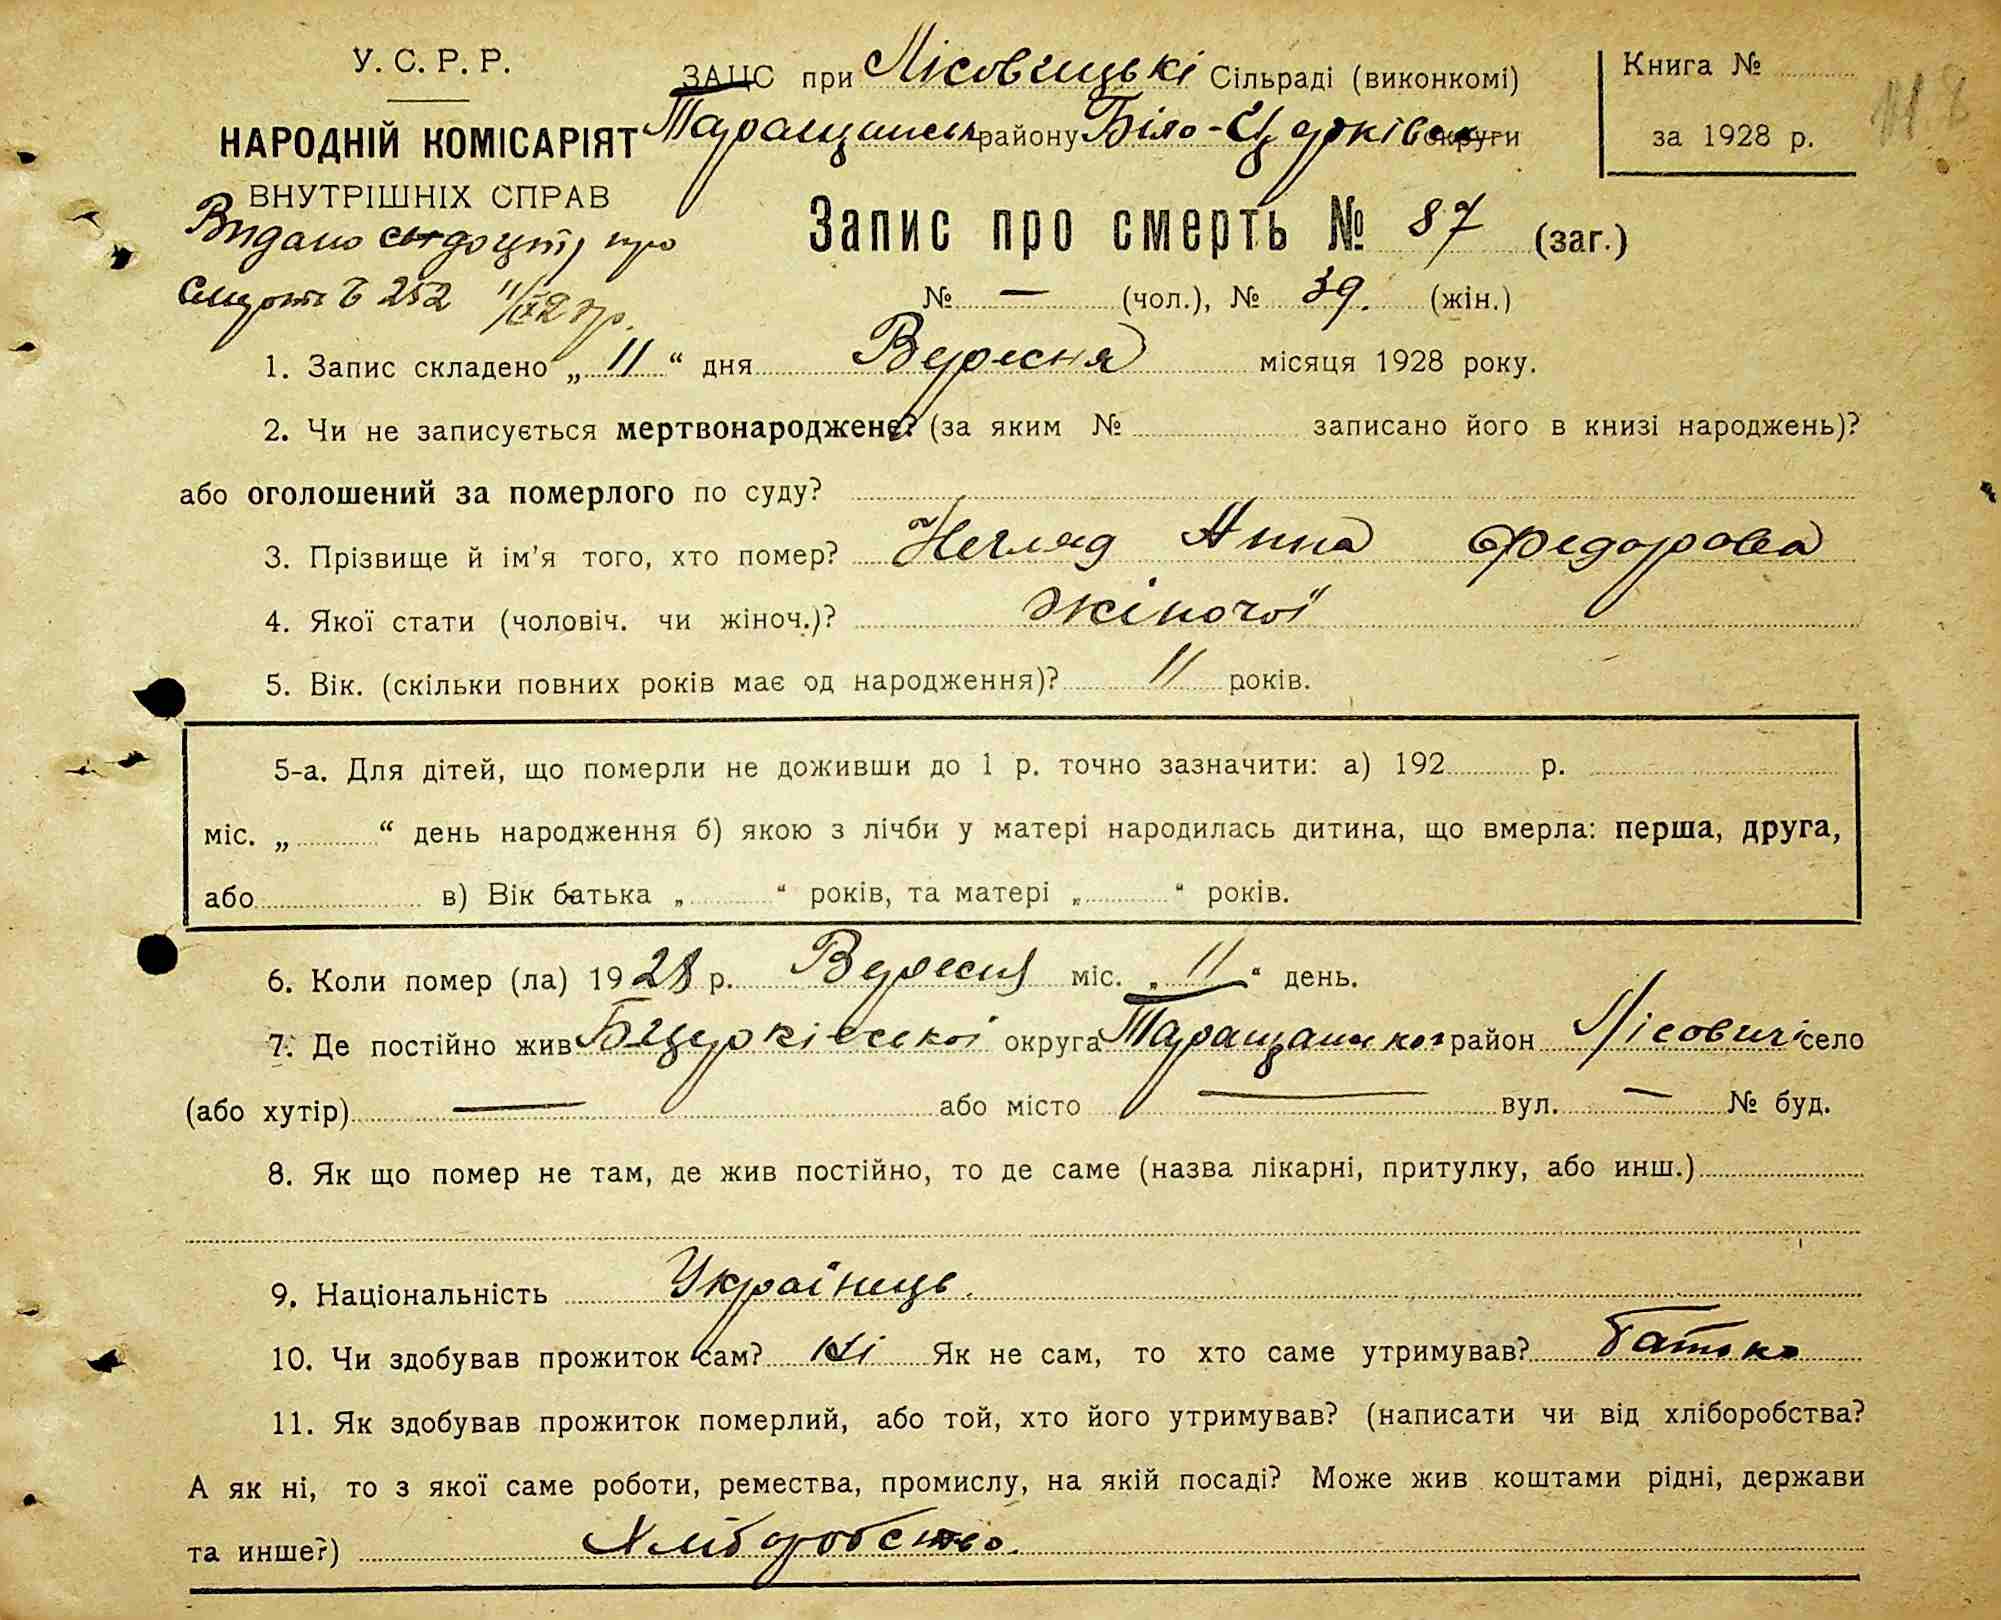 У. С. Р. Р.
НАРОДНІЙ КОМІСАРІЯТ
ВНУТРІШНІХ СПРАВ
ЗАЦС при Лісовицькі Сільраді (виконкомі)
Таращанськ району Біло-Церківськ округи
Книга №
за 1928 р.
118
Видано свідоцтв про
смерть Ч 252 11/IX 28 р.
Запис про смерть № 87 (заг.)
№ — (чол.), № 39. (жін.)
1. Запис складено „ 11 “ дня Вересня місяця 1928 року.
2. Чи не записується мертвонароджене? (за яким № записано його в книзі народжень)?
або оголошений за померлого по суду?
3. Прізвище й ім’я того, хто помер? Негляд Анна Федорова
4. Якої стати (чоловіч. чи жіноч.)? жіночої
5. Вік. (скільки повних років має од народження)? 11 років.
5-а. Для дітей, що померли не доживши до 1 р. точно зазначити: а) 192 р.
міс. „ “ день народження б) якою з лічби у матері народилась дитина, що вмерла: перша, друга,
або в) Вік батька „ “ років, та матері „ “ років.
6. Коли помер (ла) 1928 р. Вересня міс. „ 11 “ день.
7. Де постійно жив Бцерківської округа Таращанської район Лісовичі село
(або хутір) — або місто — вул. — № буд.
8. Як що помер не там, де жив постійно, то де саме (назва лікарні, притулку, або инш.)
9. Національність Українець.
10. Чи здобував прожиток сам? Ні Як не сам, то хто саме утримував? Батько
11. Як здобував прожиток померлий, або той, хто його утримував? (написати чи від хліборобства?
А як ні, то з якої саме роботи, ремества, промислу, на якій посаді? Може жив коштами рідні, держави
та инше?) Хліборобство.